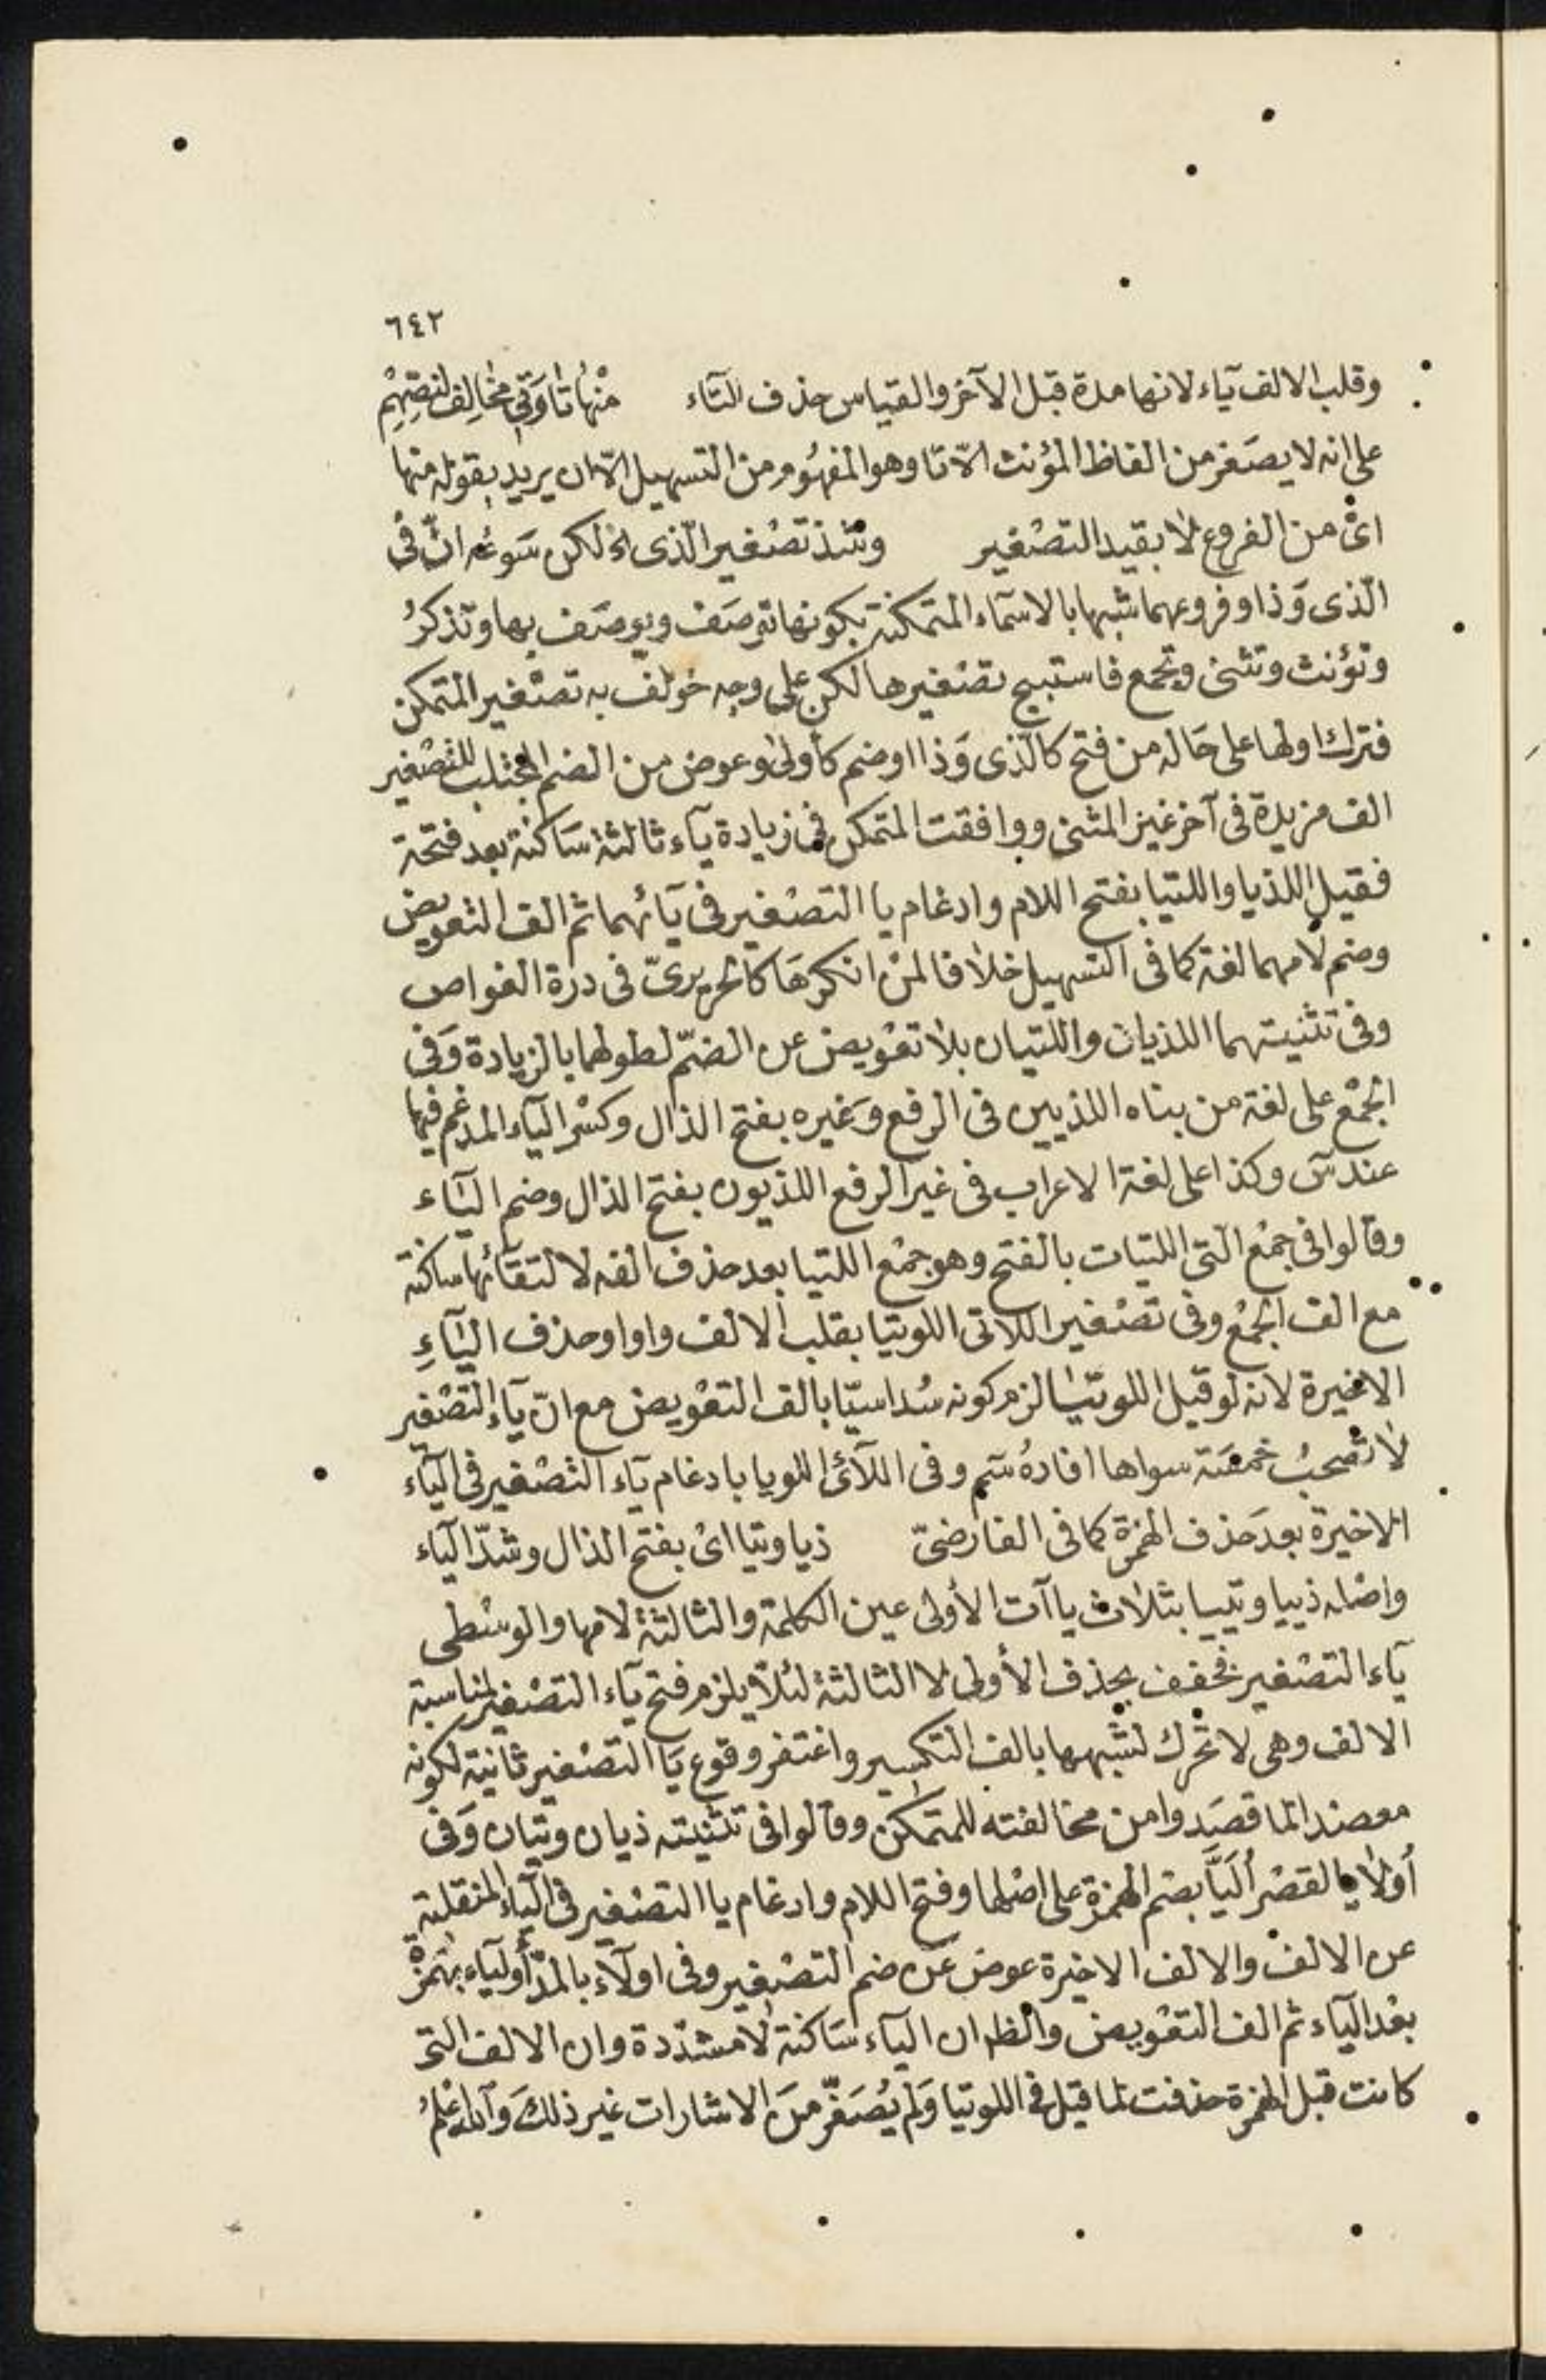 ٦٤٢
وقلب الالف يآء لانها مدة قبل الآخر والقياس حذف التآء منْهَا تَا وَتِي مخَالِف لنصِّهِمْ
على انه لا يصَغر من الفاظ المؤنث الّا تا وهو المفهُوم من التسهيل الّا ان يريد بقوله منها
اىْ من الفروع لا بقيد التصْغير وشذ تصْغير الّذى الخ لكن سَوغه انّ فى
الّذى وَذا وفروعهما شبها بالاسمآء المتمكنة بكونها توصَف ويوصَف بها وتذكرُ
وتؤنث وتثنى وتجمع فاستبيح تصْغيرها لكن على وجه خولف به تصْغير المتمكن
فترك اولها على حَاله من فتح كالّذى وَذا اوضم كأولى وعوض من الضم المجتلب للتصْغير
الف مزيدة فى آخر غير المثنى ووافقت المتمكن فى زيادة يآء ثالثة سَاكنة بعد فتحة
فقيل اللذيا واللتيا بفتح اللام وادغام يا التصْغير فى يآئهما ثم الف التعويض
وضم لامهما لغة كما فى التسهيل خلافا لمنْ انكرهَا كالحريرىّ فى درة الغواص
وفى تثنيتهما اللذيان واللتيان بلا تعْويض عن الضمّ لطولهما بالزيادة وَفى
الجمْع على لغة من بناه اللذيين فى الرفع وَغيره بفتح الذال وكسْر اليآء المدغم فيها
عند سٓ وكذا على لغة الاعراب فى غير الرفع اللذيون بفتح الذال وضم اليآء
وقالوا فى جمْع التى اللتيات بالفتح وهو جمْع اللتيا بعد حذف الفه لالتقآئها ساكنة
مع الف الجمْع وفى تصْغير اللاتى اللويتيا بقلب الالف واوا وحذف اليآءِ
الاخيرة لانه لو قيل اللويتيا لزم كونه سُداسيّا بالف التعْويض مع انّ يآء التصْغير
لا تصْحبُ خمسَة سواها افادهُ سَم وفى اللآئى اللويا بادغام يآء التصْغير فى اليآء
الاخيرة بعد حَذف الهمزة كما فى الفارضىّ ذيا وتيا اىْ بفتح الذال وشدّ اليآء
واصْله ذييا وتييا بثلاث ياآت الأولى عين الكلمة والثالثة لامها والوسْطى
يآء التصْغير فخفف بحذف الأولى لا الثالثة لئلّا يلزم فتح يآء التصْغير لمناسبة
الالف وهى لا تحْرك لشبهها بالف التكسير واغتفر وقوع يَا التصْغير ثانية لكونه
معضدا لما قصَدوا من مخالفته للمتمكن وقالوا فى تثنيته ذيان وتيان وَفى
أولا بالقصْر أُلَيَّا بضم الهمزة على اصْلها وفتح اللام وادغام يا التصْغير فى اليآء المنقلبة
عن الالفْ والالف الاخيرة عوض عن ضم التصْغير وفى اولآء بالمدّ أوليآء بهَمزة
بعْد اليآء ثم الف التعْويض والظ ان اليآء سَاكنة لا مشدّدة وان الالف التى
كانت قبل الهمزة حذفت لما قيل فى اللويتيا وَلم يُصَغّر منَ الاشارات غير ذلكَ وَاللهُ اعْلمُ